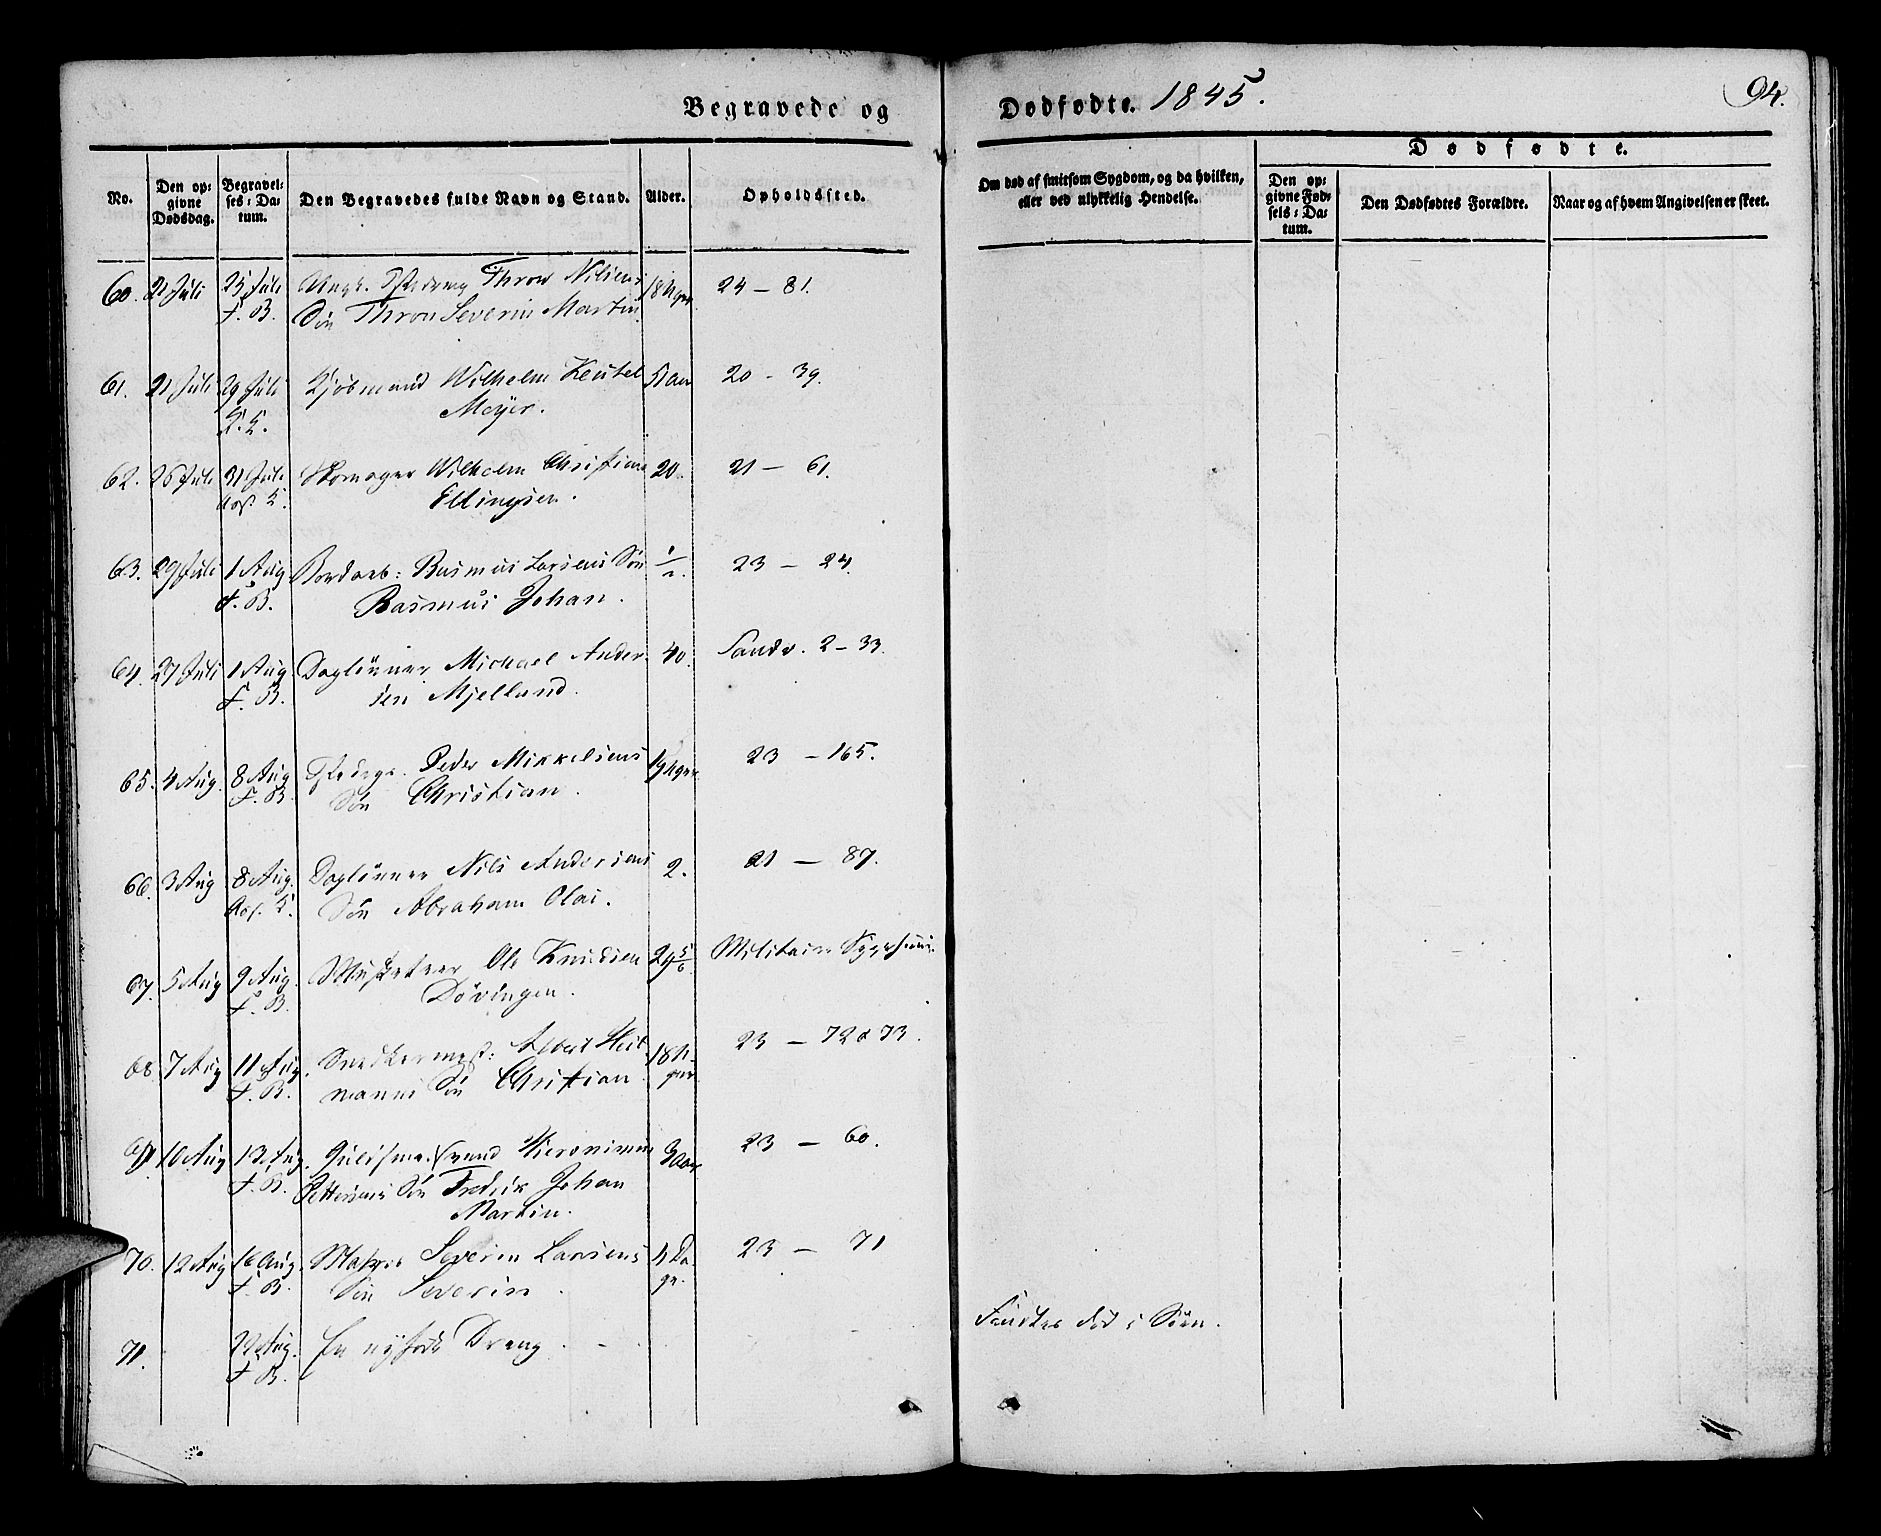 Begravede og
Dødfødte. 1845.
94.
No.
Den opgivne Dødsdag.
Begravelses-Datum.
Den Begravedes fulde Navn og Stand.
Alder.
Opholdssted.
Om død af smitsom Sygdom, og da hvilken, eller ved ulykkelig Hendelse.
Dødfødte.
Den opgivne Fødsels-Datum.
Den Dødfødtes Forældre.
Naar og af hvem Angivelsen er skeet.
60. 21 Juli 25 Juli Thron Nilsens 18 Uger 24 – 81.
F. B. Søn Thron Severin Martin
61. 21 Juli 29 Juli Kjøbmand Wilhelm Keutel 51 Aar 20 - 39.
Meyer.
62. 26 Juli 31 Juli Skomager Wilhelm Christian 20. 21 – 61.
Ellingsen.
63. 29 Juli 1 Aug Bordarb: Rasmus Larsens Søn 1/2. 23 – 24.
F. B. Rasmus Johan.
64. 27 Juli 1 Aug. Dagleiner Michael Ander- 40. Sandv. 2 – 33.
F. B. sen Mjelland.
65. 4 Aug. 8 Aug Peder Mikkelsens 19 Uger 23 – 165.
F. B. Søn Christian.
66. 3 Aug 8 Aug. Dagleiner Nils Andersens 2. 21 – 87.
Søn Abraham Olai.
67. 5 Aug 9 Aug. Musketeer Ole Knudsen 29 5/6 Militair Sygehuus.
F. B. Døvingen.
68 7 Aug 11 Aug. Snedkermest: Albert Heit- 18 U- 23 – 72 & 73.
F. B. manns Søn Christian ger
69. 10 Aug 13 Aug. Hieronimus 3 Aar 23 – 60.
F. B. Pettersens Søn Fredrik Johan
Martin.
70. 12 Aug 16 Aug. Matros Severin Larsens 11 Da- 23 – 71
F. B. Søn Severin. ge.
71. 22 Aug. En nyfødt Dreng. Fandtes død i Søen.
F. B.